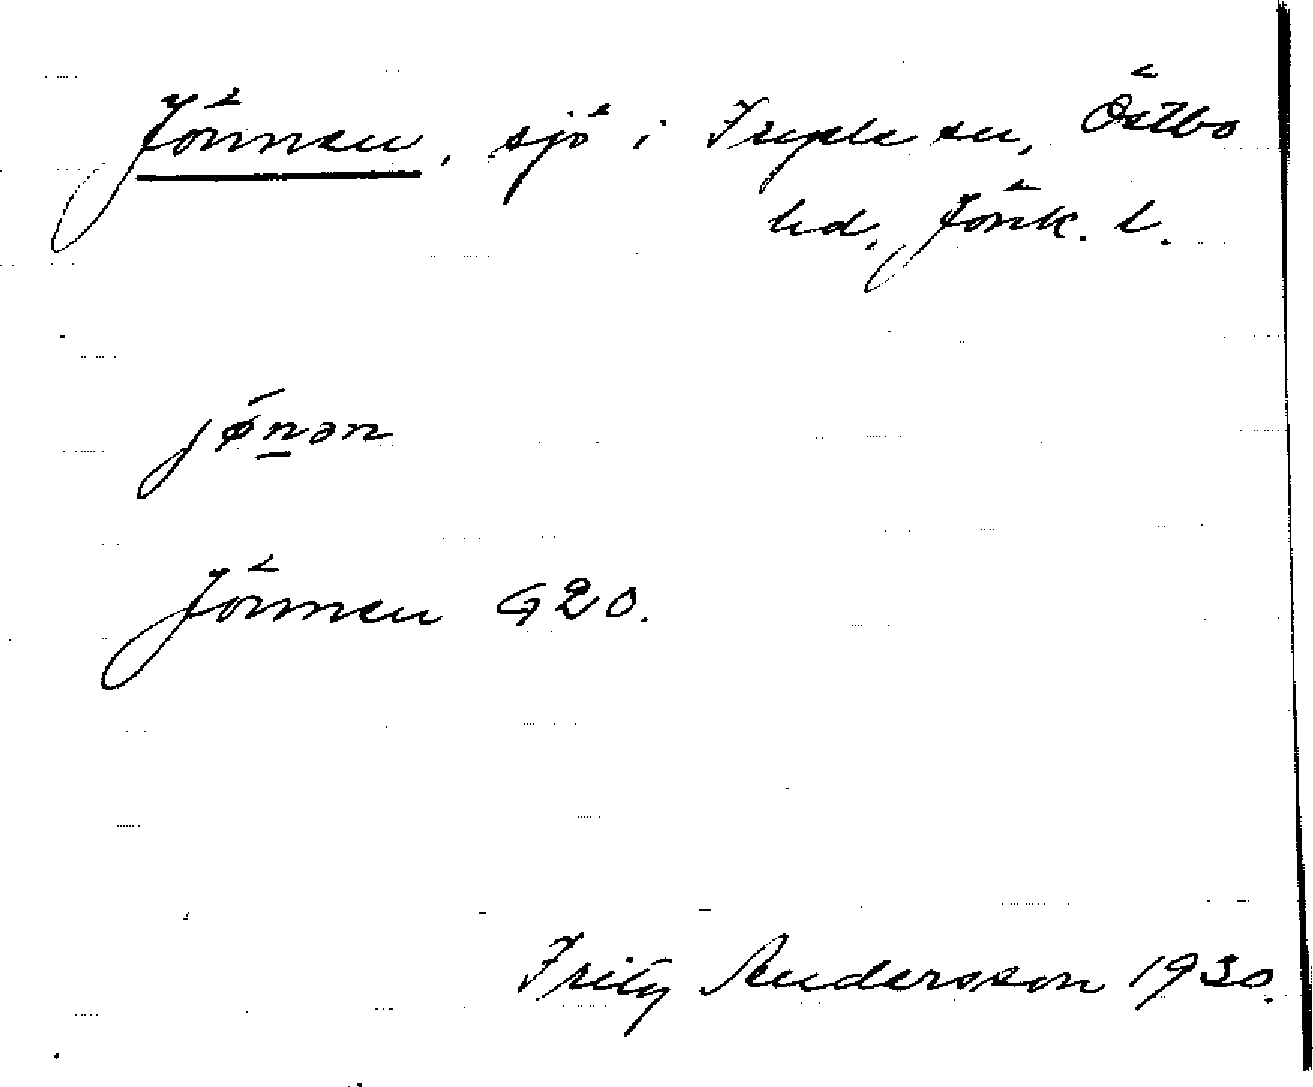 Jönnen, sjö i Fryele sn, Östbo
hd, Jönk. l.
jǿn̲ən
Jönnen G20.
Fritz Andersson 1930.